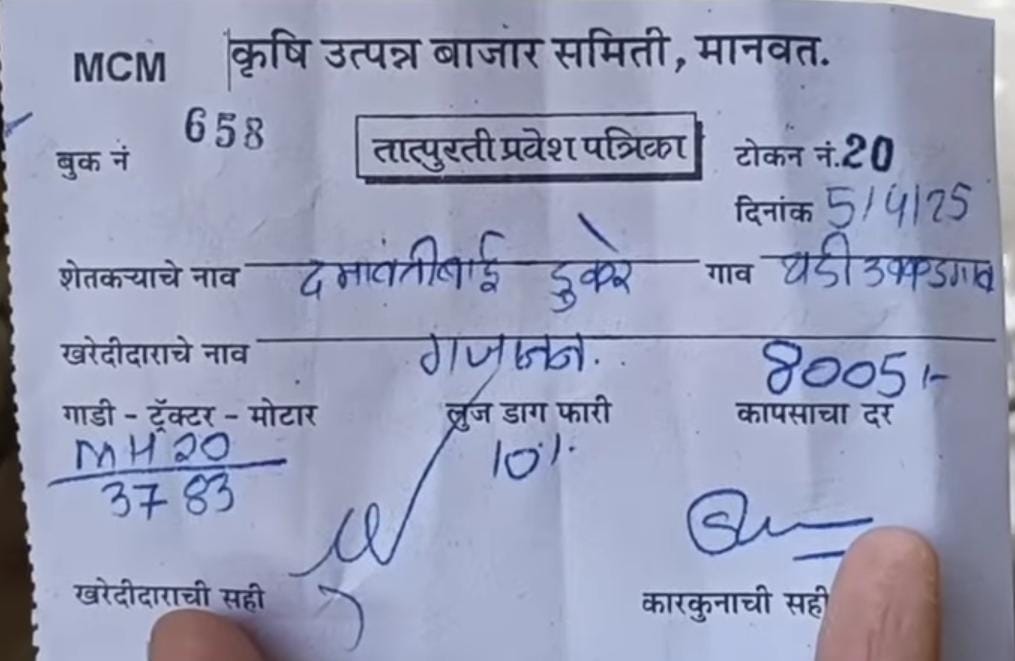 MCM कृषि उत्पन्न बाजार समिती, मानवत.
बुक नं 658 तात्पुरती प्रवेश पत्रिका टोकन नं.20
दिनांक 5/4/25
शेतकऱ्याचे नाव डुकरे गाव
खरेदीदाराचे नाव गजानन. 8005/-
गाडी - ट्रॅक्टर - मोटार लुज डाग फारी कापसाचा दर
MH 20 10%
3783
खरेदीदाराची सही कारकुनाची सही